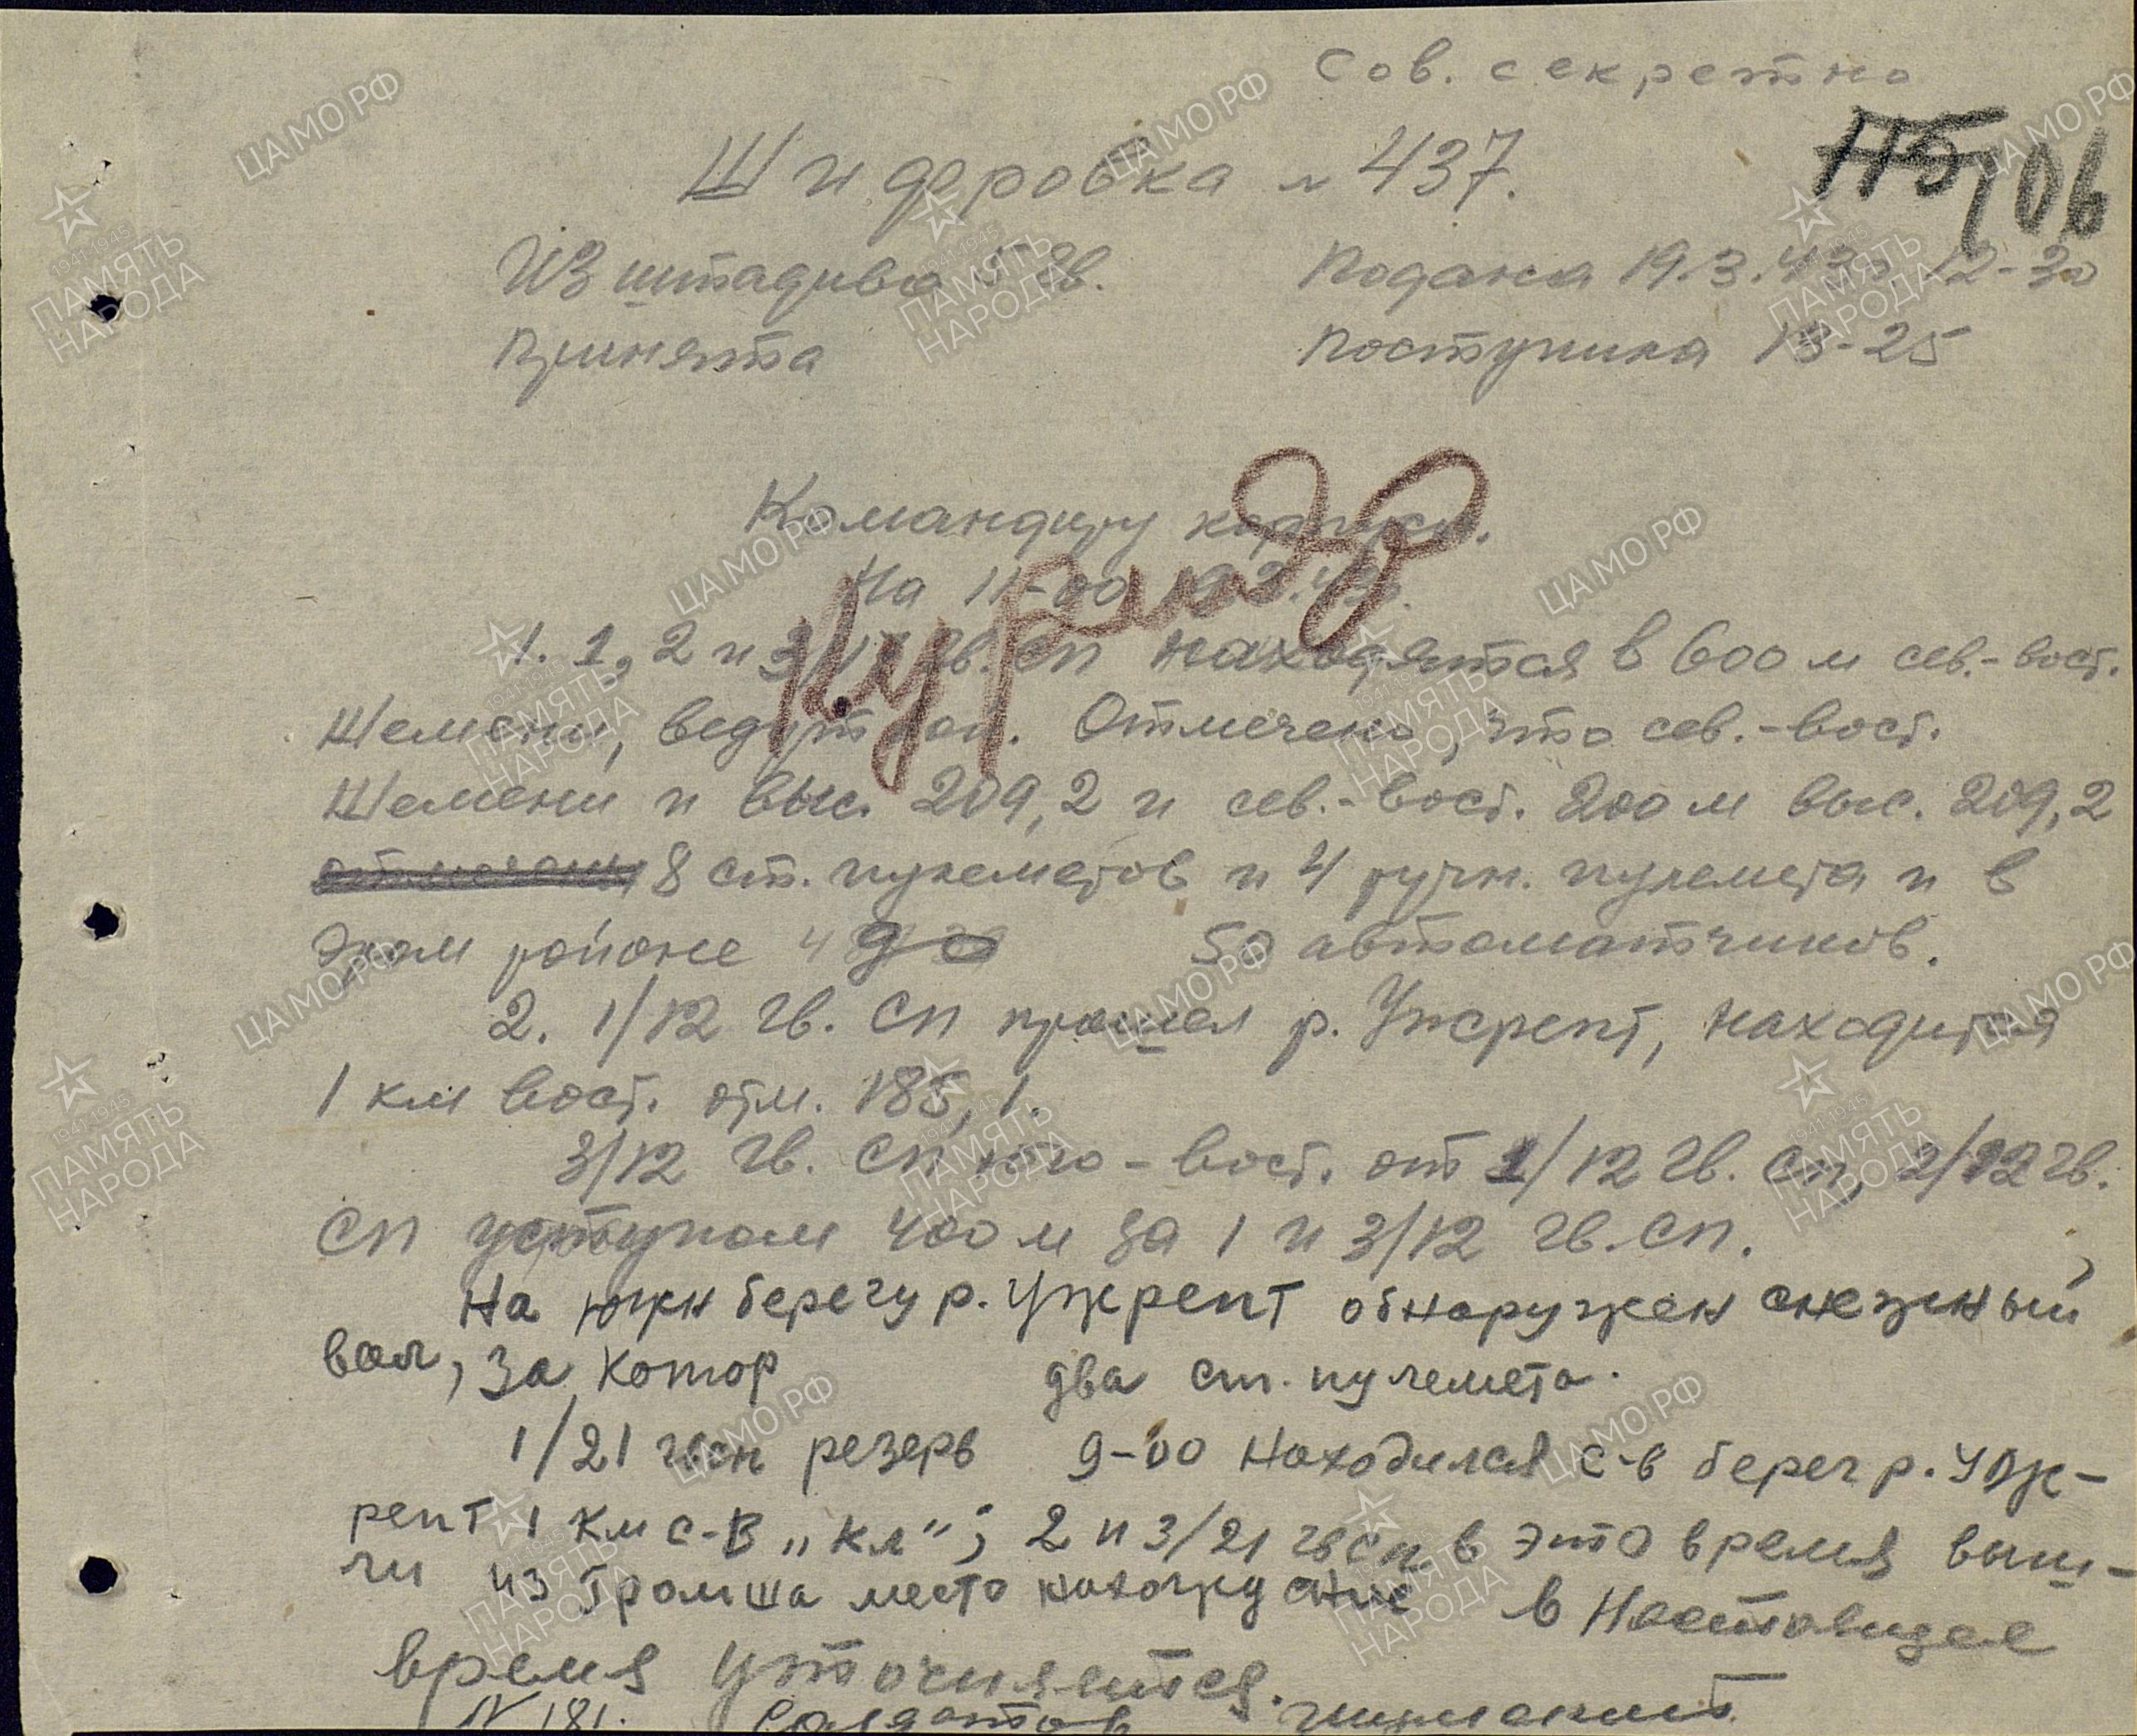 Сов. секретно
Шифровка № 437.
115 106
Из штадива 5 гв. Подана 19.3.43г. 12-30
Принята Поступила 13-25
Командиру корпуса.
На 11-00 19.3.43г.
1. 1, 2 и 3/ гв. СП находятся в 600 м сев.-вост.
Шемени, ведут бои. Отмечено, что сев.-вост.
Шемени и выс. 209,2 и сев.-вост. 200 м выс. 209,2
8 ст. пулеметов и 4 ручн. пулемета и в
этом районе до 50 автоматчиков.
2. 1/12 гв. СП прошел р. Ужрепт, находится
1 км вост. отм. 185,1.
3/12 гв. СП юго-вост. от 1/12 гв. СП, 2/12 гв.
СП уступом 400 м за 1 и 3/12 гв. СП.
На южн берегу р. Ужрепт обнаружен снежный
вал, за котор два ст. пулемета.
1/21 гвсп резерв 9-00 находился с-в берег р. Уж-
репт 1 км с-в „кл"; 2 и 3/21 гвсп в это время выш-
ли из Громша место нахождение в настоящее
время уточняется.
№ 181. Солдатов
ЦАМО РФ
1941 1945
ПАМЯТЬ
НАРОДА